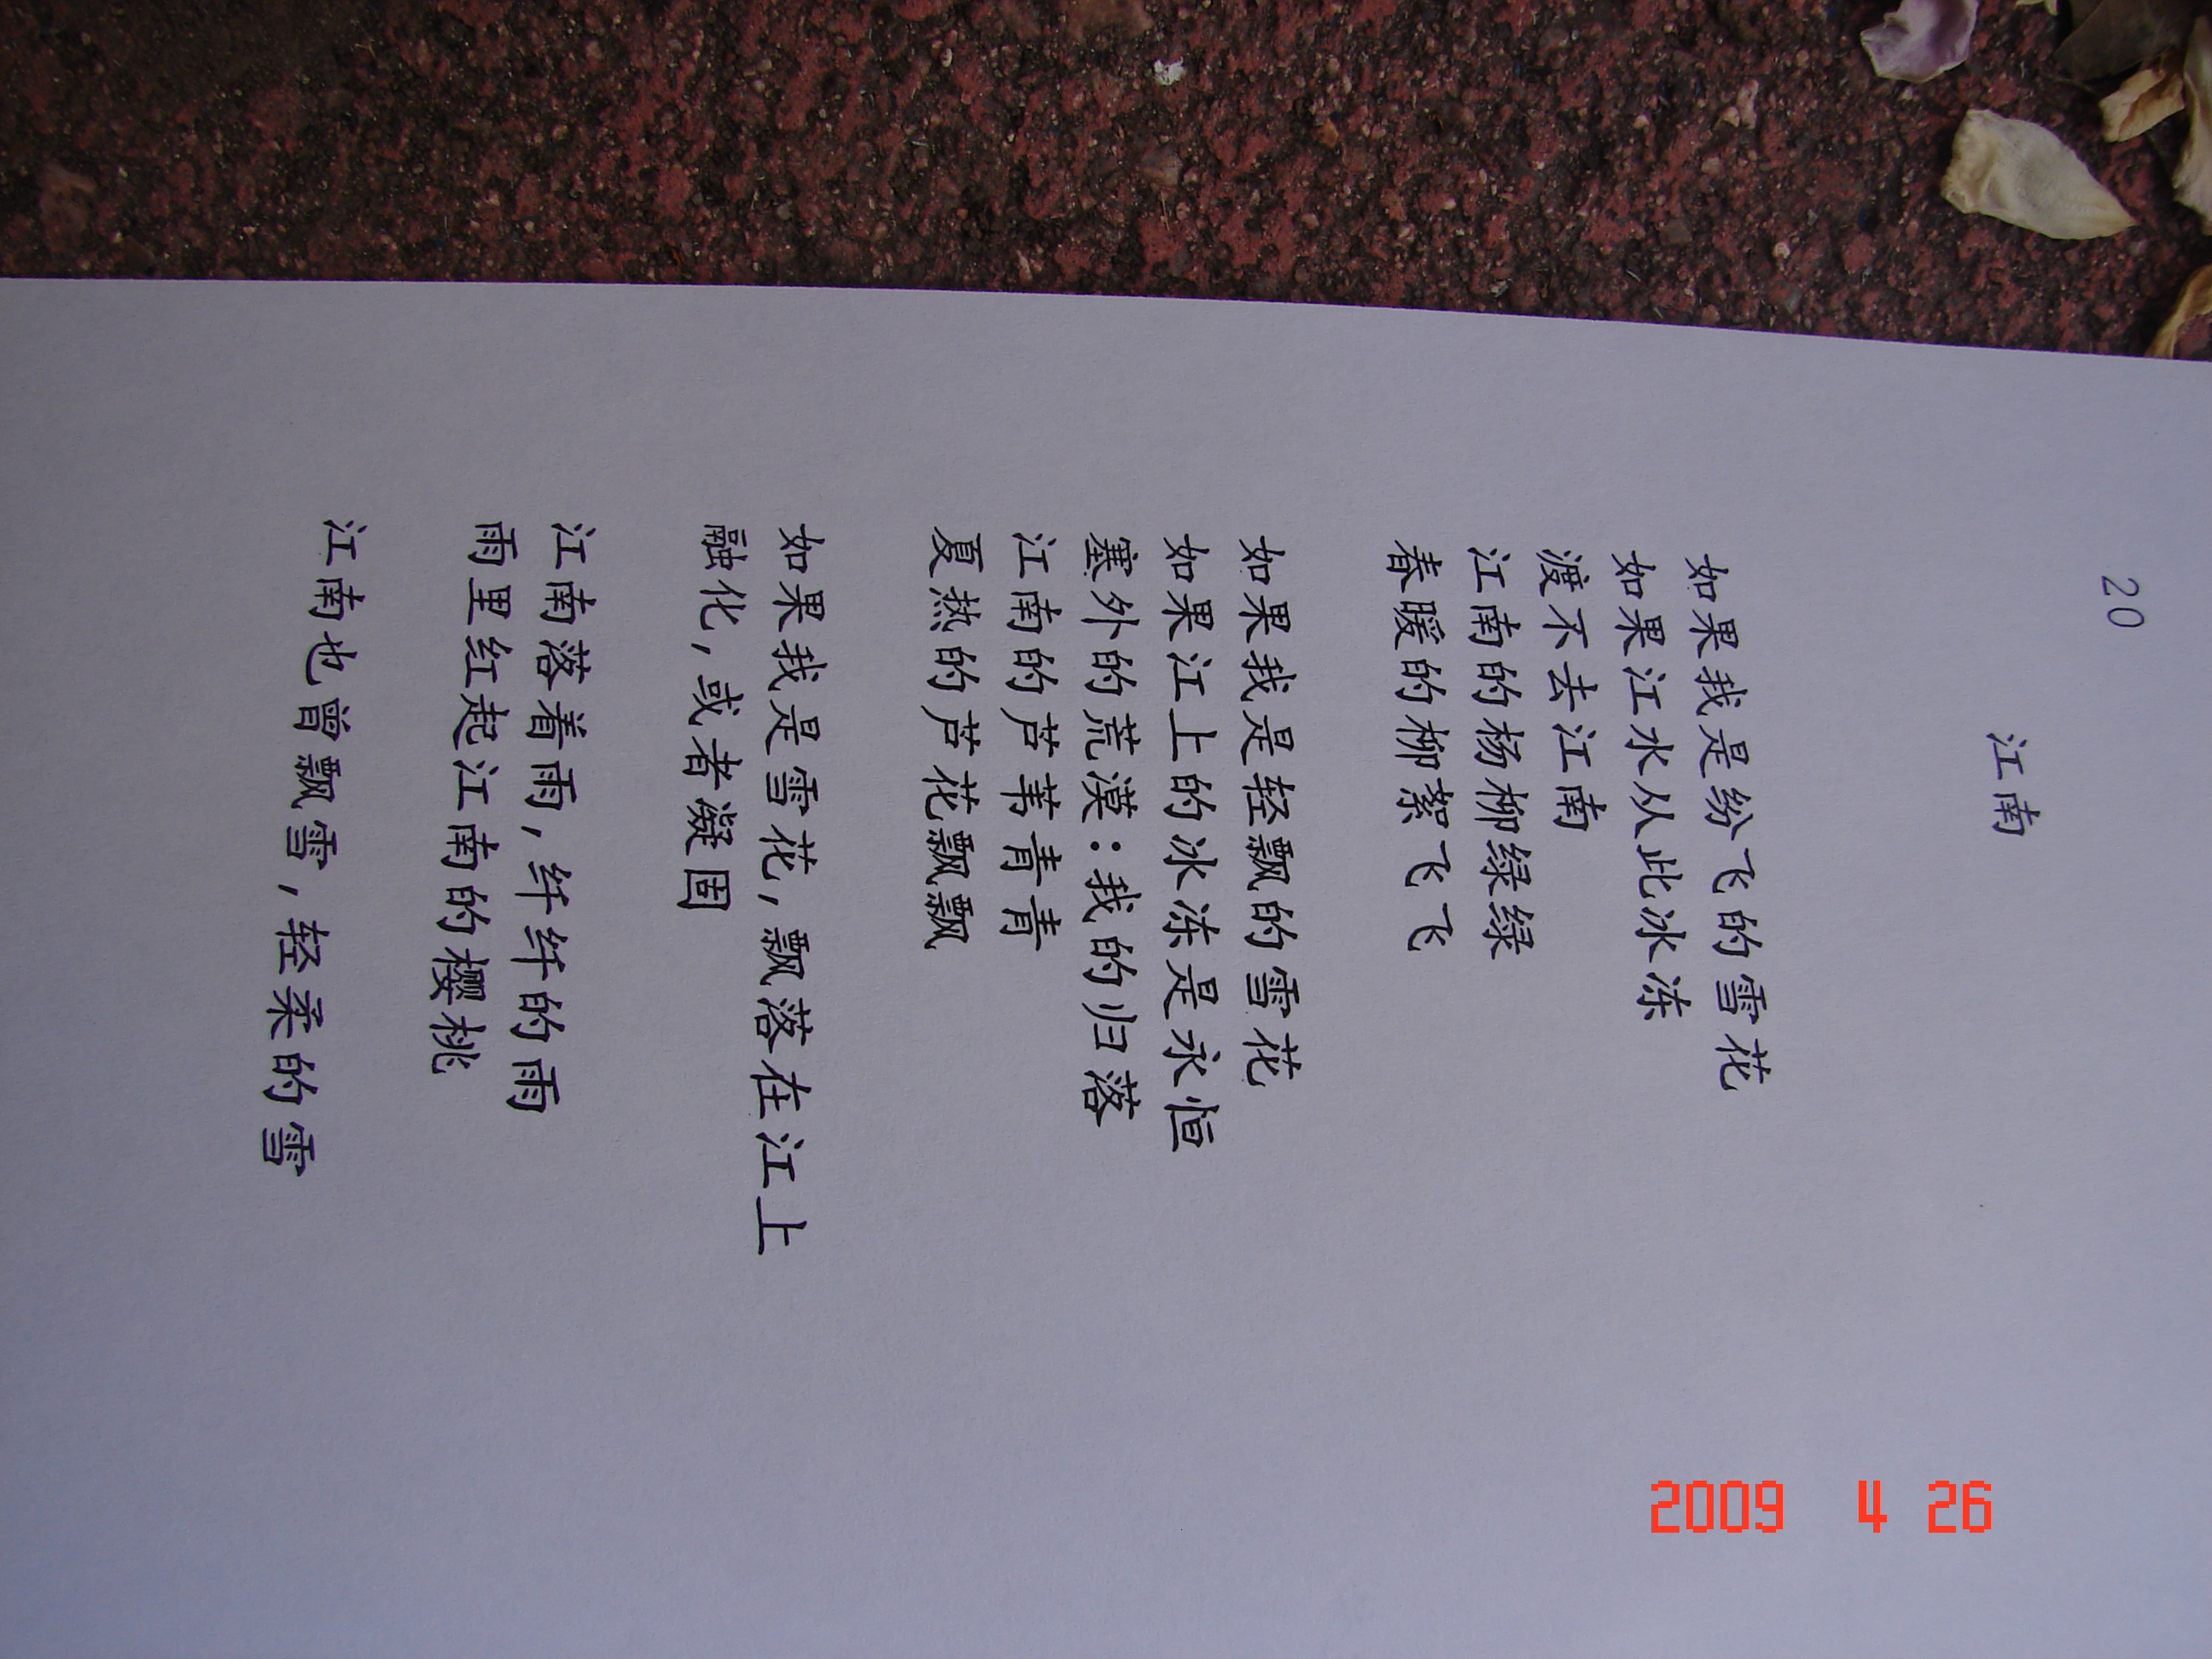 20
江南
如果我是纷飞的雪花
如果江水从此冰冻
渡不去江南
江南的杨柳绿绿
春暖的柳絮飞飞
如果我是轻飘的雪花
如果江上的冰冻是永恒
塞外的荒漠:我的归落
江南的芦苇青青
夏热的芦花飘飘
如果我是雪花,飘落在江上
融化,或者凝固
江南落着雨,纤纤的雨
雨里红起江南的樱桃
江南也曾飘雪,轻柔的雪
2009 4 26